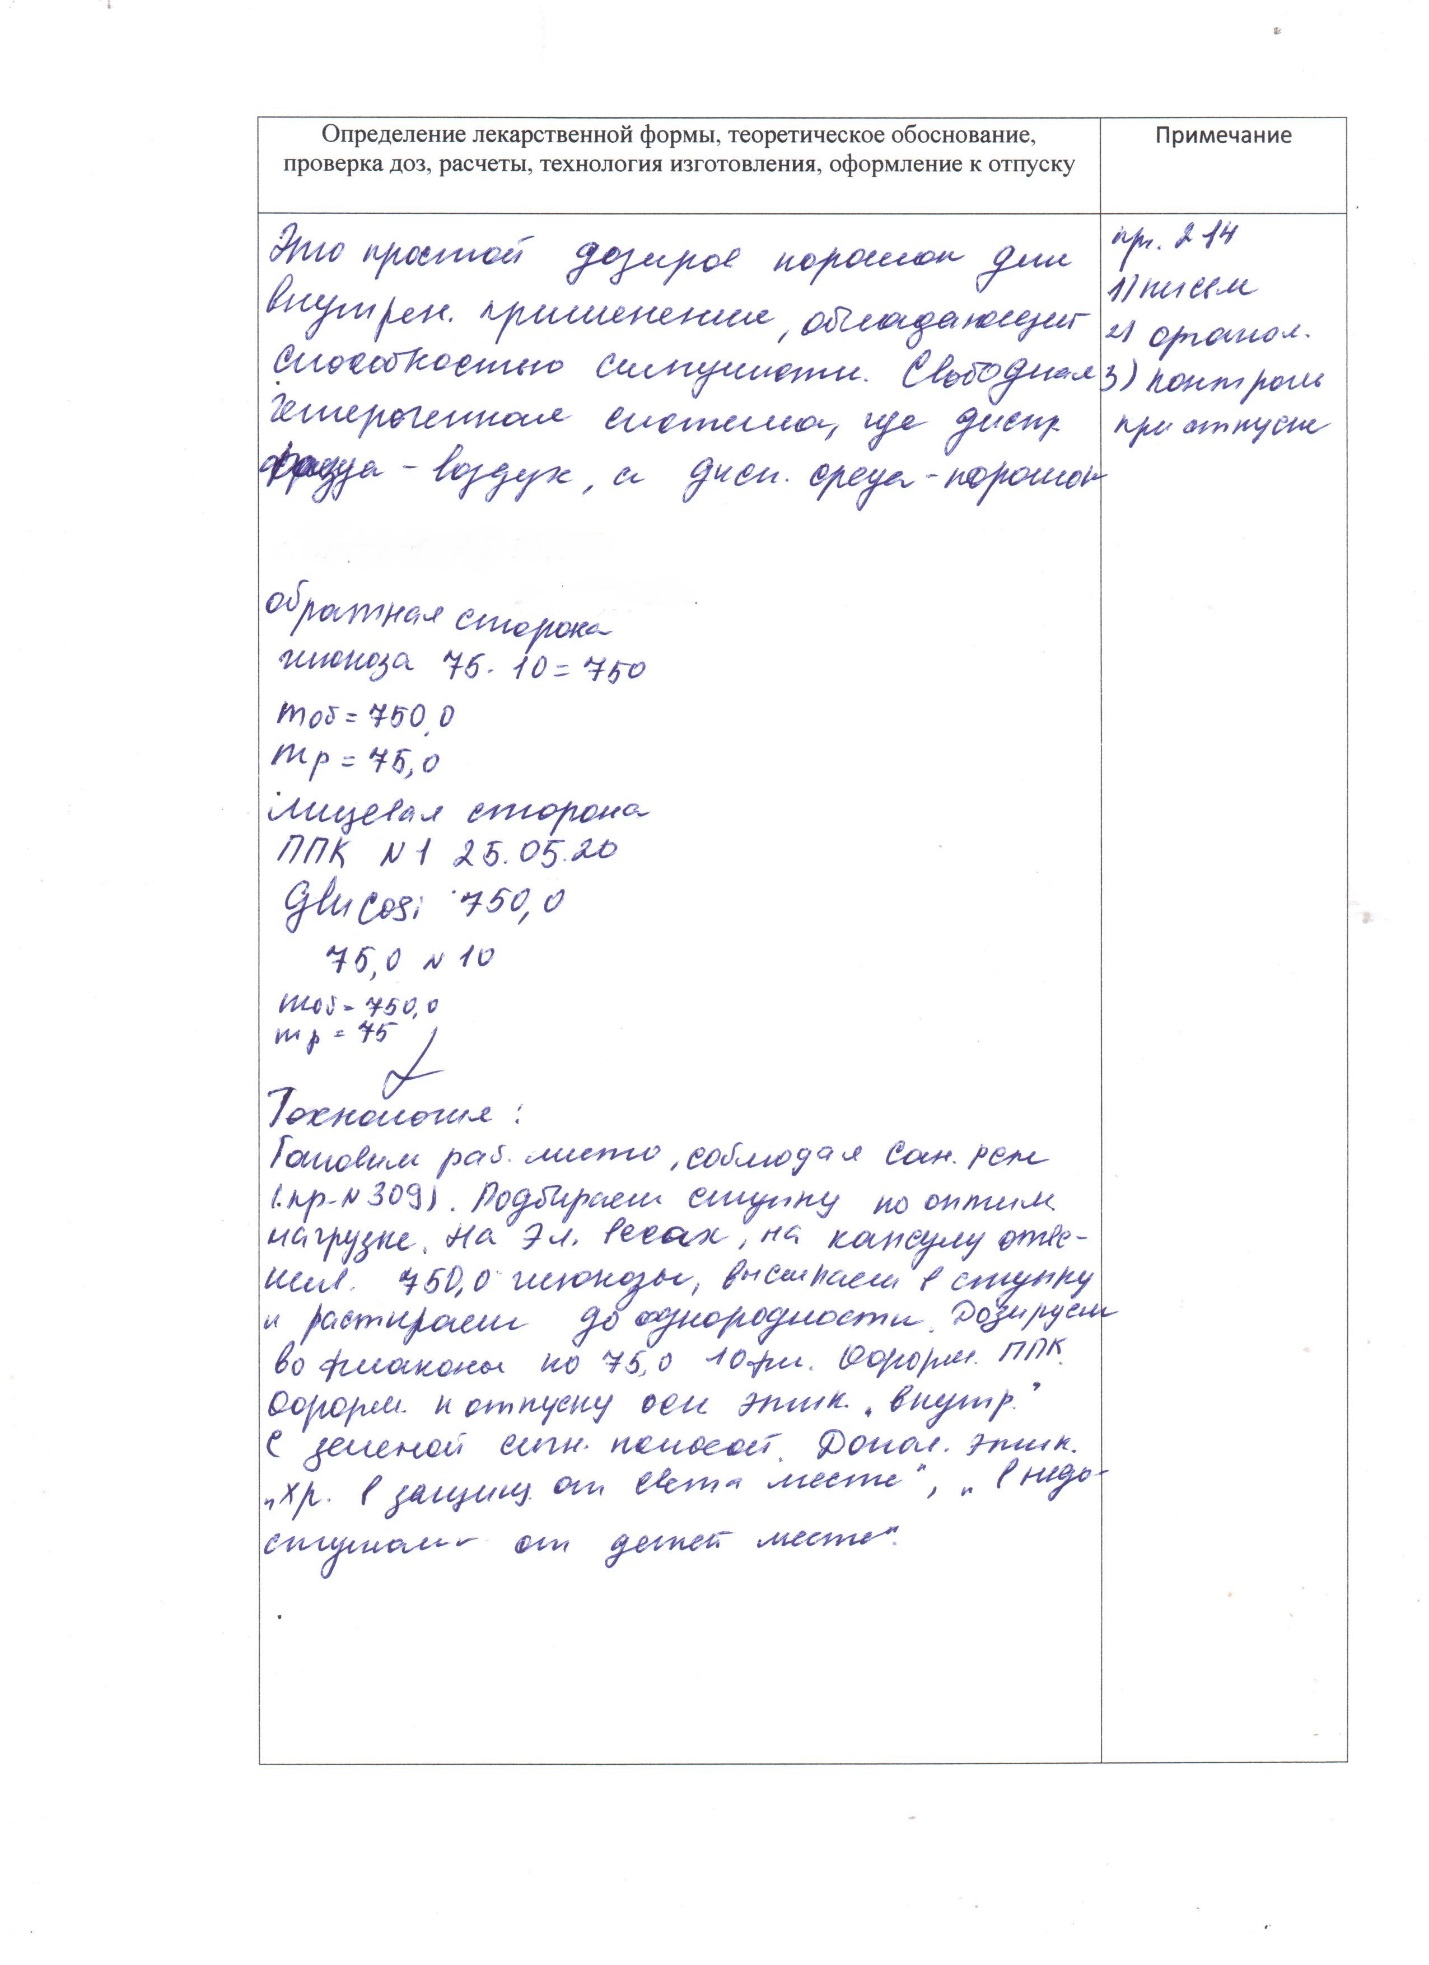 Определение лекарственной формы, теоретическое обоснование,
проверка доз, расчеты, технология изготовления, оформление к отпуску
Примечание
Это простой дозиров порошок для
внутрен. применения, обладающий
способностью сыпучести. Свободная
гетерогенная система, где дисп.
фаза - воздух, а дисп. среда - порошок
пр. 214
1) письм
2) органол.
3) контроль
при отпуске
обратная сторона
глюкоза 75 · 10 = 750
mоб = 750,0
mр = 75,0
лицевая сторона
ППК N1 25.05.20
Glucosi 750,0
75,0 N 10
mоб = 750,0
mр = 75
Технология:
Готовим раб. место, соблюдая сан. реж
(пр-N309). Подбираем ступку по оптим.
нагрузке. На эл. весах, на капсулу отве-
шив. 750,0 глюкозы, высыпаем в ступку
и растираем до однородности. Дозируем
во флаконы по 75,0 10фл. Оформ. ППК.
Оформ. к отпуску осн этик. „внутр."
с зеленой сигн. полосой. Допол. этик.
„Хр. в защищ. от света месте", „в недо-
ступном от детей месте".